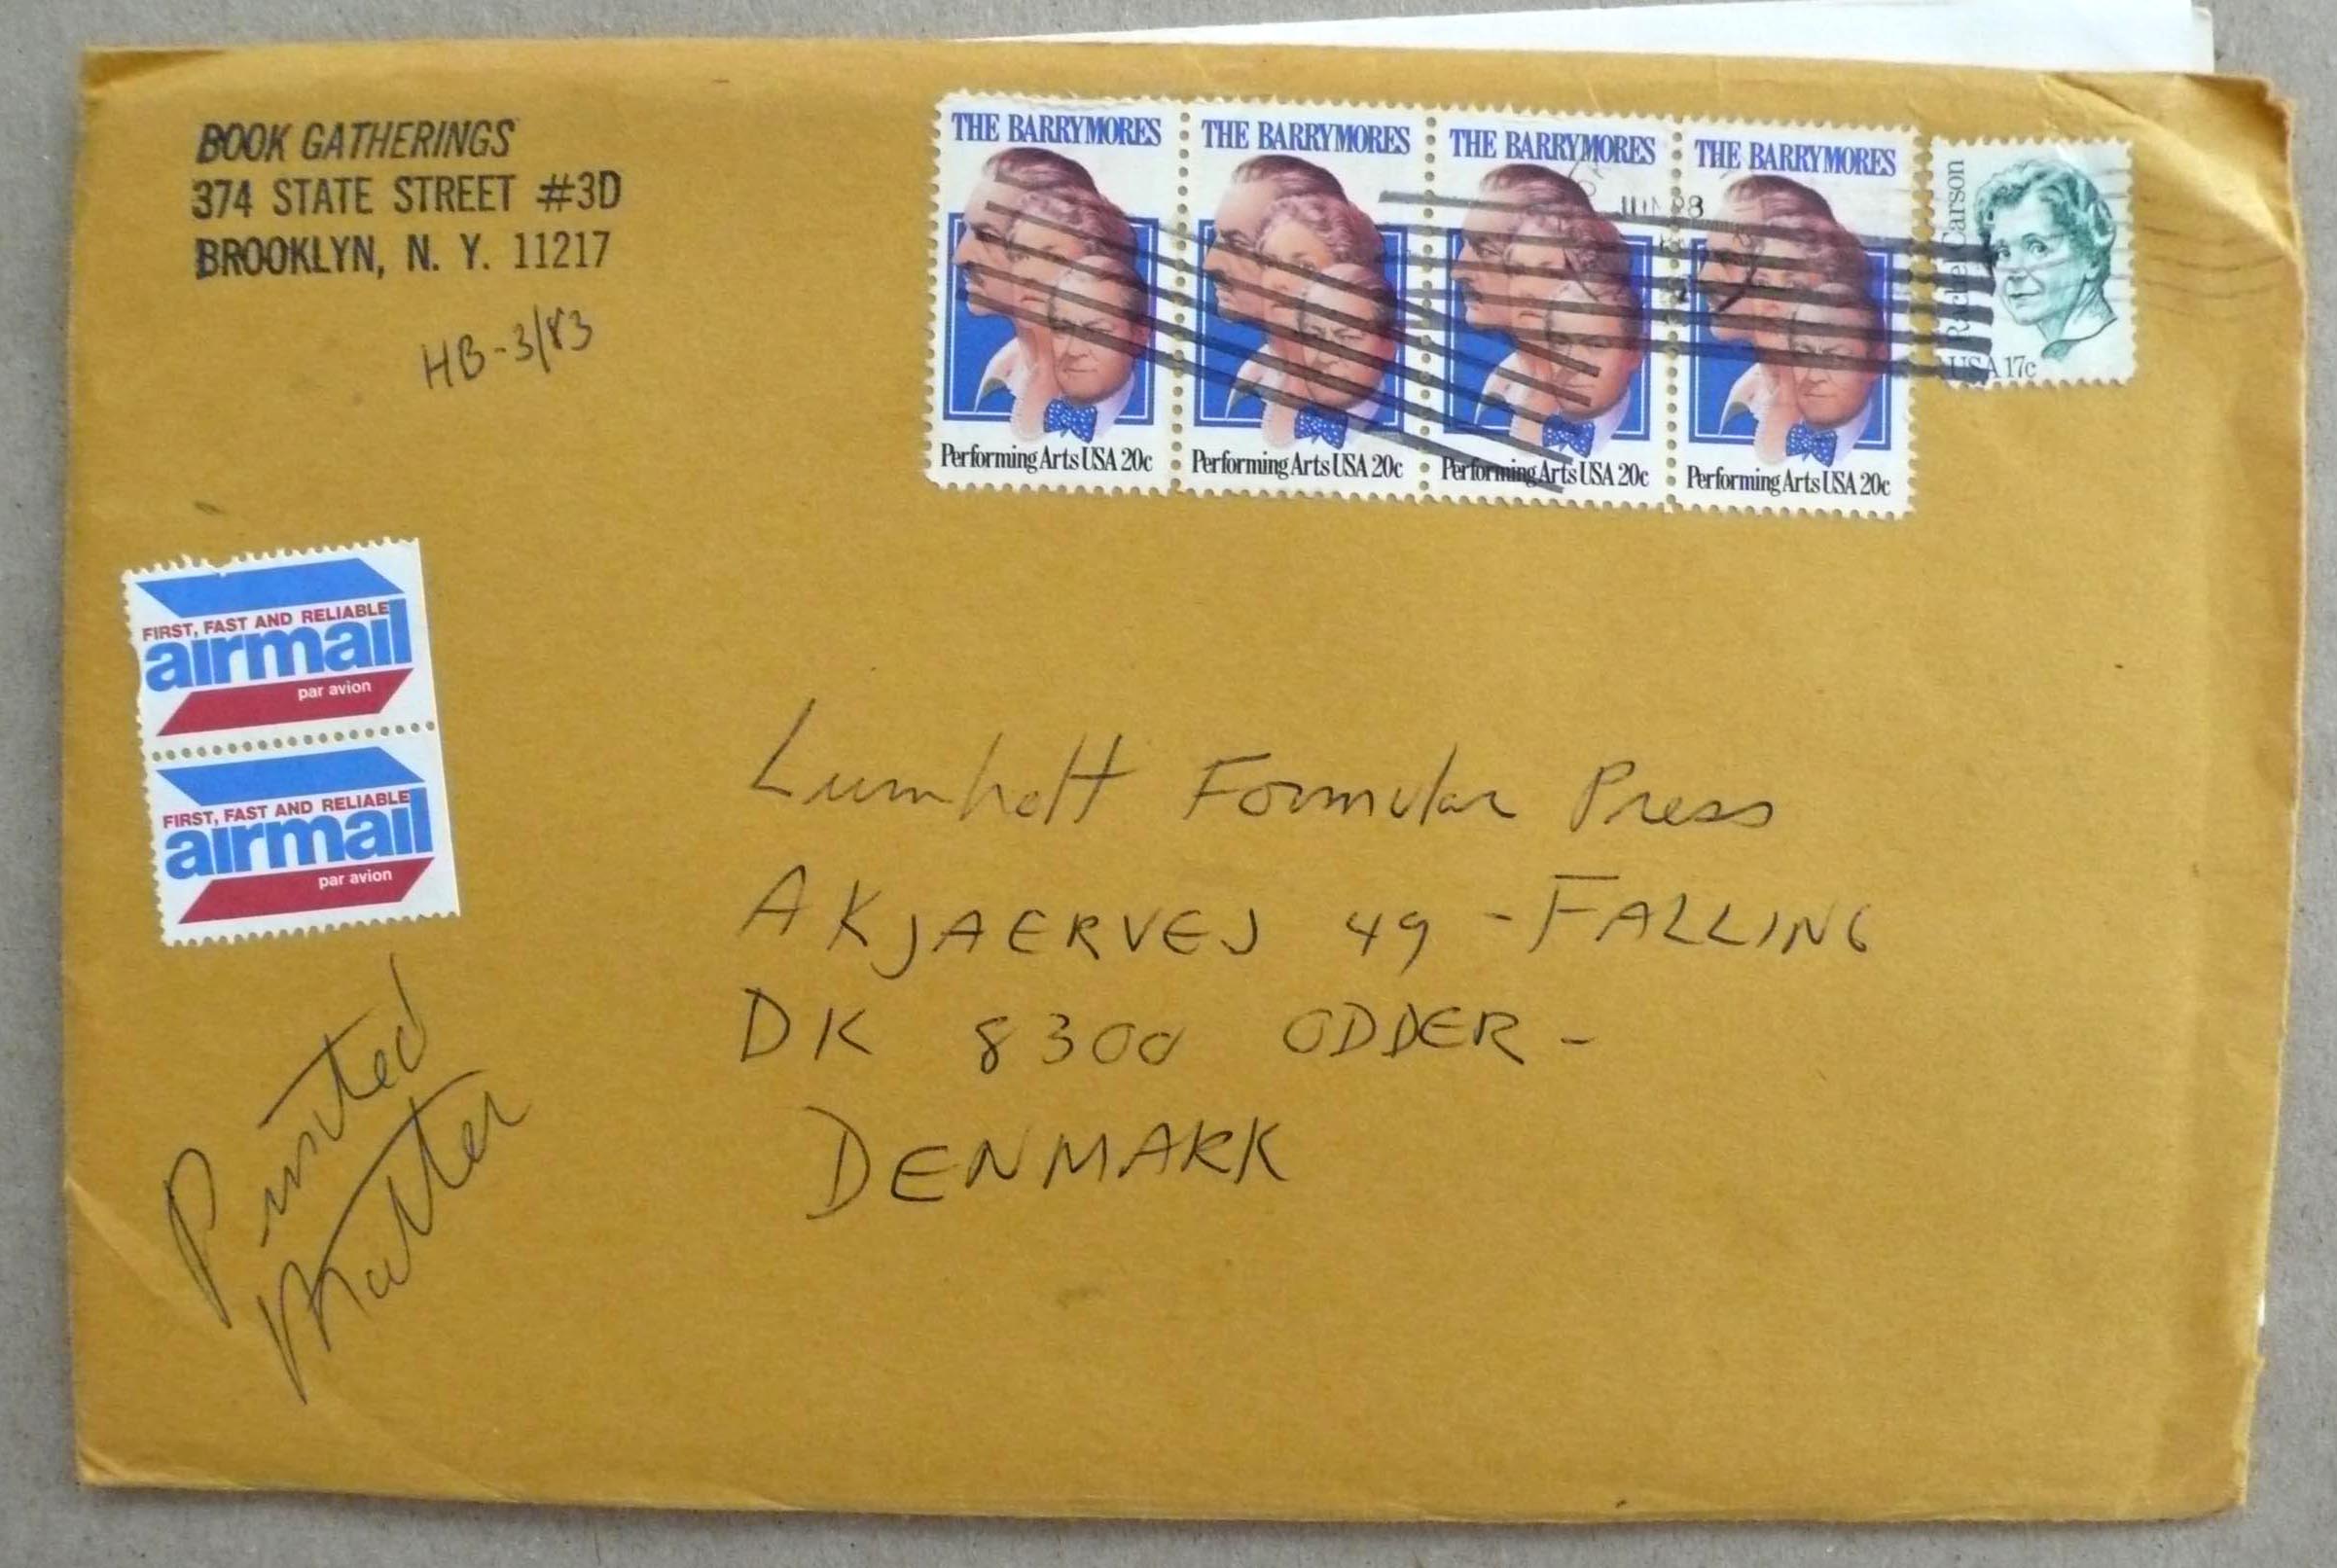 BOOK GATHERINGS
374 STATE STREET #3D
BROOKLYN, N. Y. 11217
HB-3/83
THE BARRYMORES
Performing Arts USA 20c
THE BARRYMORES
Performing Arts USA 20c
THE BARRYMORES
Performing Arts USA 20c
THE BARRYMORES
Performing Arts USA 20c
Rachel Carson
USA 17c
FIRST, FAST AND RELIABLE
airmail
par avion
FIRST, FAST AND RELIABLE
airmail
par avion
Printed
Matter
Lumholt Formular Press
AKJAERVEJ 49 - FALLING
DK 8300 ODDER -
DENMARK